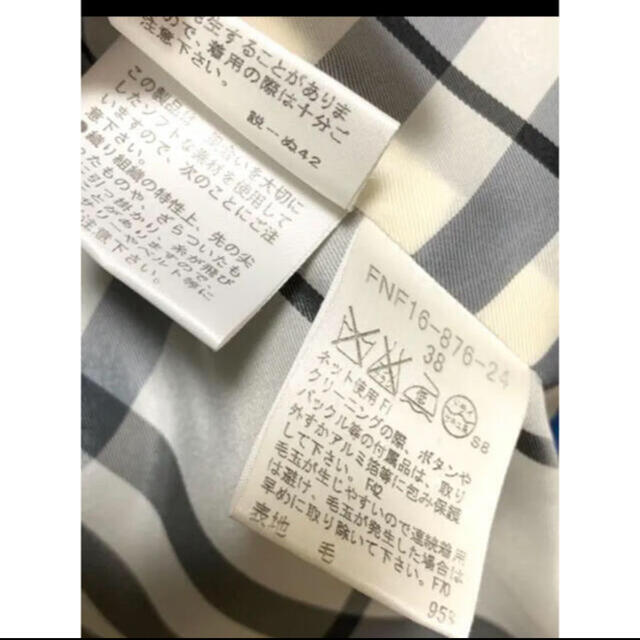 発生することがありま
ので、着用の際は十分ご
注意下さい。
説ーぬ42
この製品は、風合いを大切に
したソフトな素材を使用して
いますので、次のことにご注
意下さい。
●織り組織の特性上、先の尖
ったものや、ざらついたも
に引っ掛かり、糸が飛び
ありますので
ベルト等に
注意下さい。
FNF16-876-24
38
SB
ネット使用 FI
クリーニングの際、ボタンや
バックル等の付属品は、取り
外すかアルミ箔等に包み保護
して下さい。F42
毛玉が生じやすいので連続着用
は避け、毛玉が発生した場合は
早めに取り除いて下さい。F70
表地 毛 95%